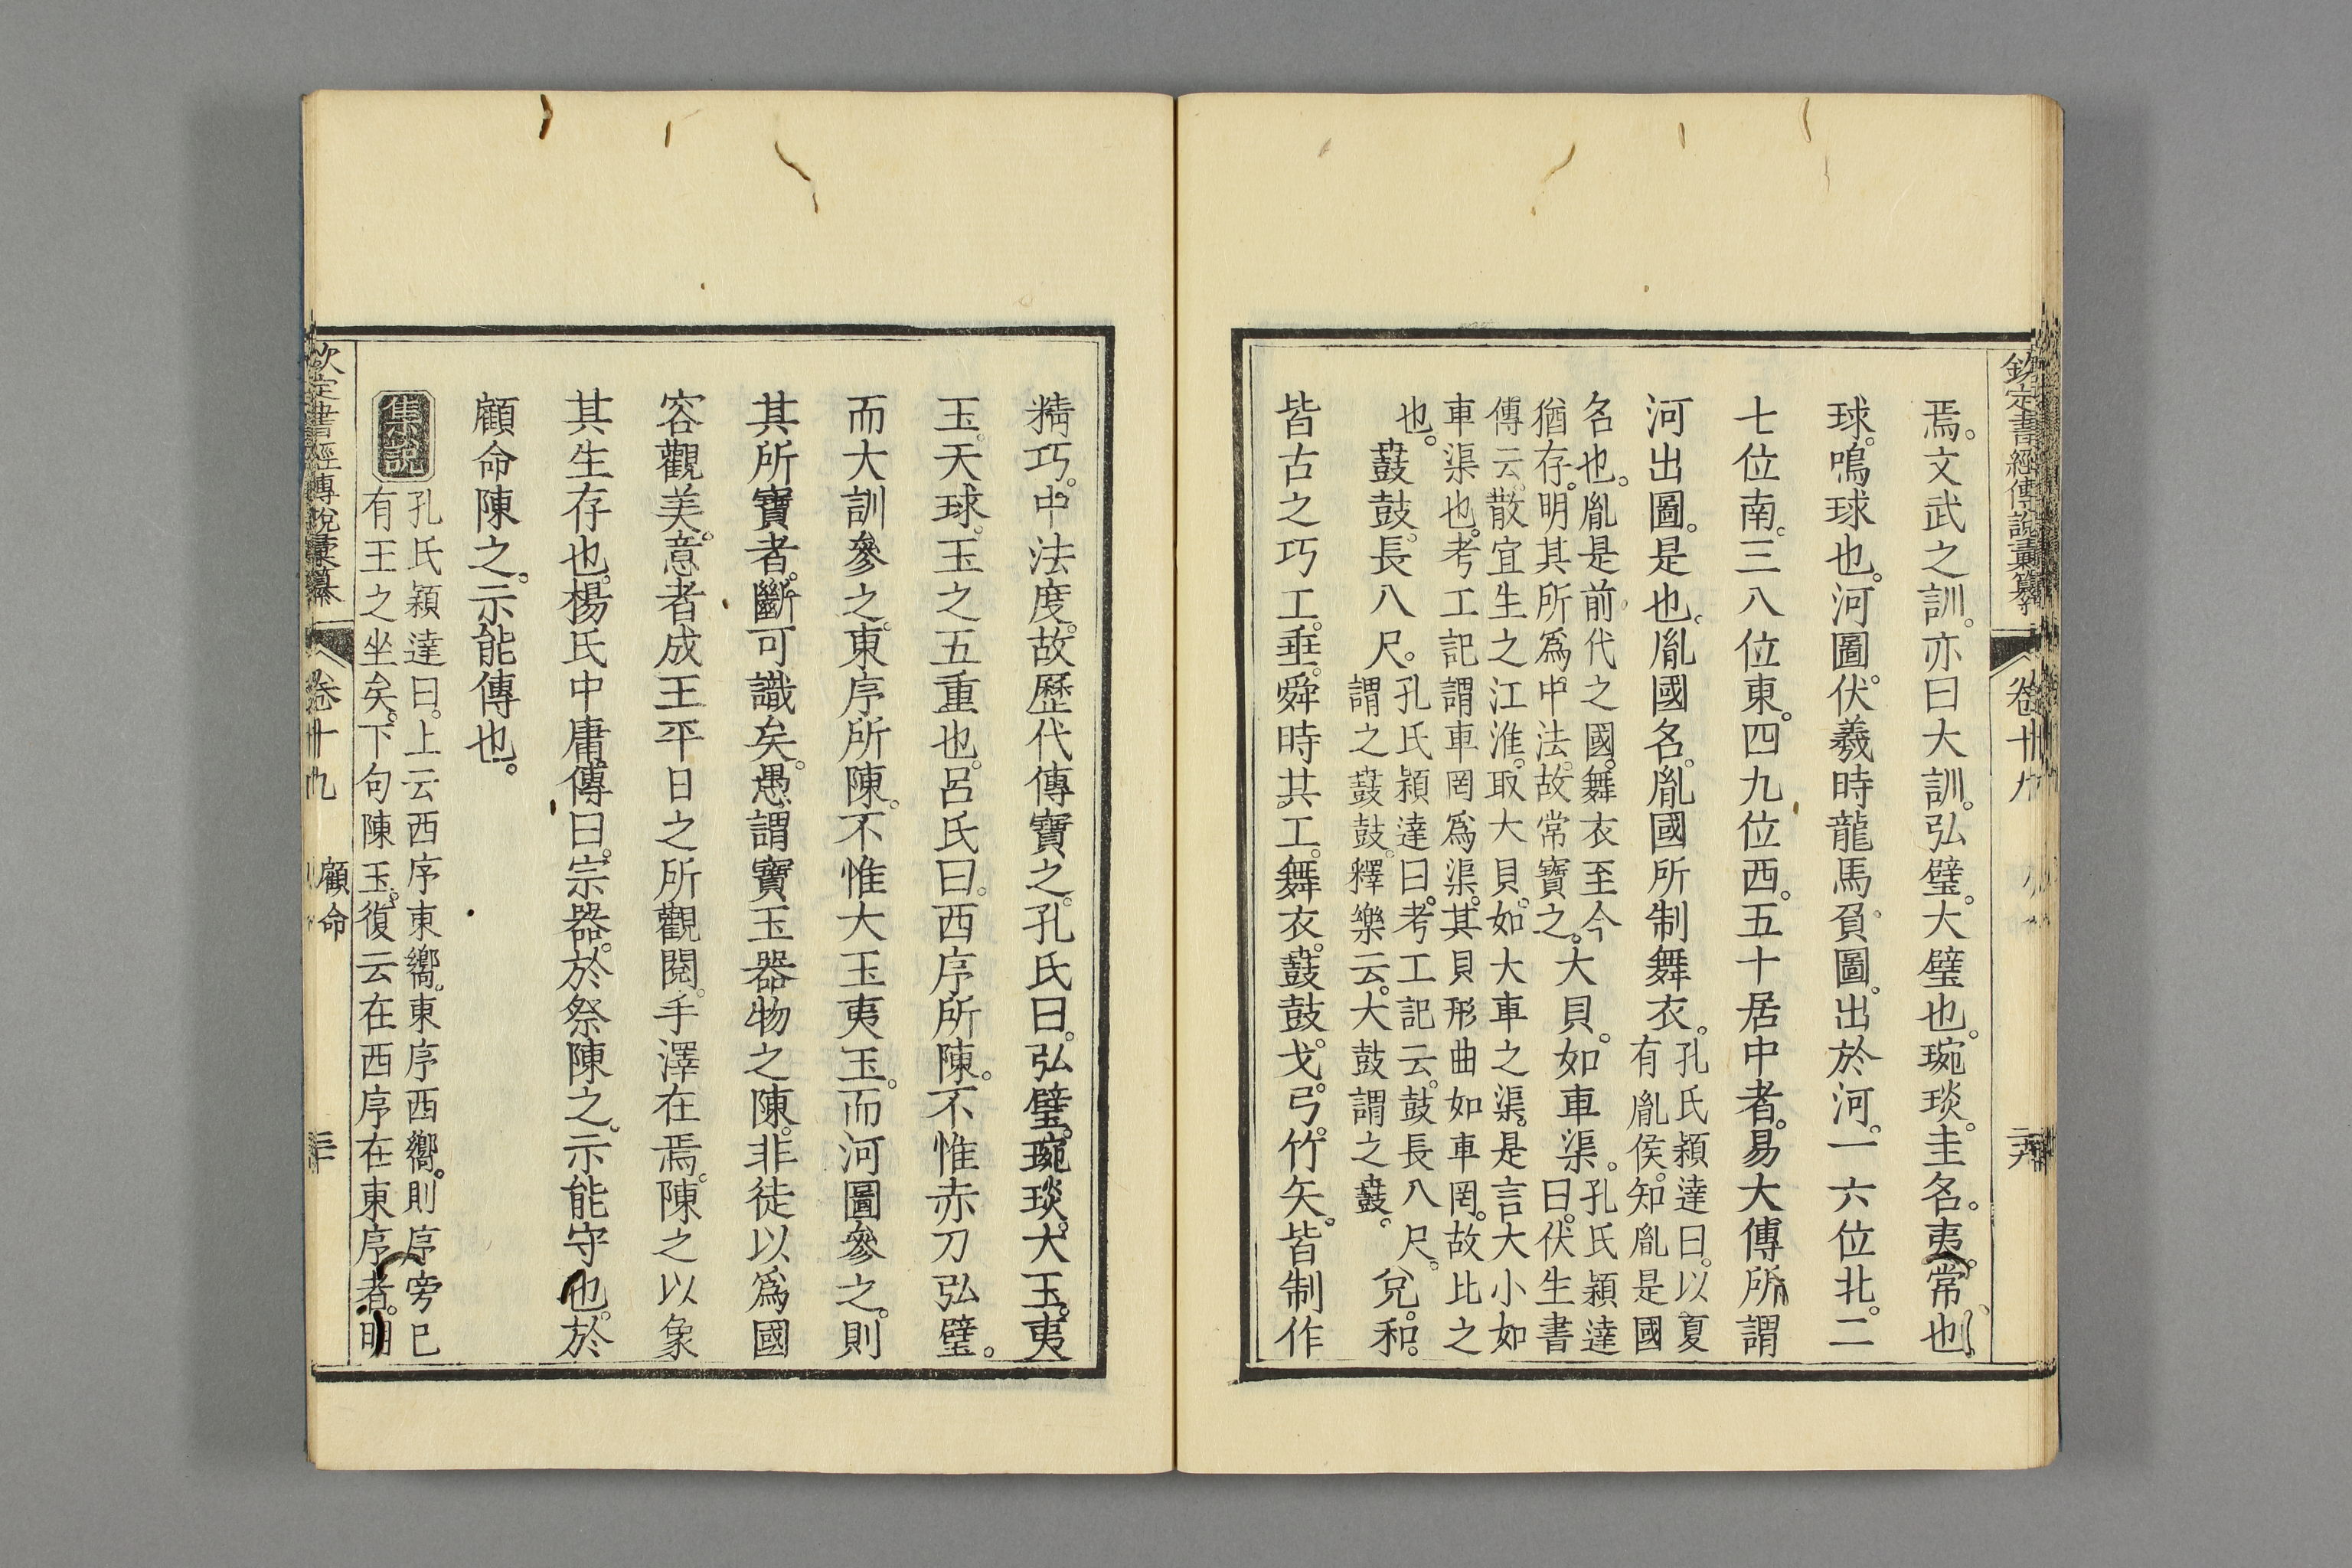 欽定書經傳說彙纂 卷十九
焉。文武之訓。亦曰大訓。弘璧。大璧也。琬琰。圭名。夷。常也。
球。鳴球也。河圖。伏羲時龍馬負圖。出於河。一六位北。二
七位南。三八位東。四九位西。五十居中者。易大傳所謂
河出圖。是也。胤國名。胤國所制舞衣。
孔氏穎達曰。以夏
有胤侯。知胤是國
名也。胤是前代之國。舞衣至今
猶存。明其所爲中法。故常寶之。
大貝。如車渠。
孔氏穎達
曰。伏生書
傳云。散宜生之江淮。取大貝。如大車之渠。是言大小如
車渠也。考工記謂車罔爲渠。其貝形曲如車罔。故比之
也。
鼖鼓。長八尺。
孔氏穎達曰。考工記云。鼓長八尺。
謂之鼖鼓。釋樂云。大鼓謂之鼖。
兌。和。
皆古之巧工。垂。舜時共工。舞衣。鼖鼓。戈。弓。竹矢。皆制作
精巧。中法度。故歷代傳寶之。孔氏曰。弘璧。琬琰。大玉。夷
玉。天球。玉之五重也。呂氏曰。西序所陳。不惟赤刀弘璧。
而大訓參之。東序所陳。不惟大玉夷玉。而河圖參之。則
其所寶者。斷可識矣。愚謂寶玉器物之陳。非徒以爲國
容觀美。意者成王平日之所觀閱。手澤在焉。陳之以象
其生存也。楊氏中庸傳曰。宗器。於祭陳之。示能守也。於
顧命陳之。示能傳也。
集說
孔氏穎達曰。上云西序東嚮。東序西嚮。則序旁已
有王之坐矣。下句陳玉。復云在西序在東序者。明
欽定書經傳說彙纂 卷十九 顧命